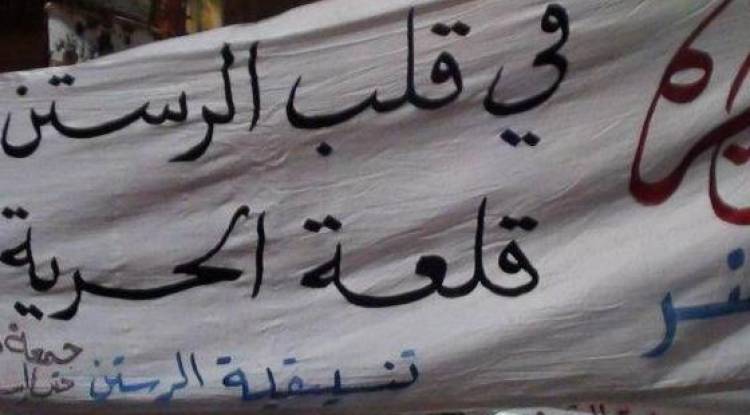 في قلب الرستن
قلعة الحرية
تنسيقية الرستن
جمعة